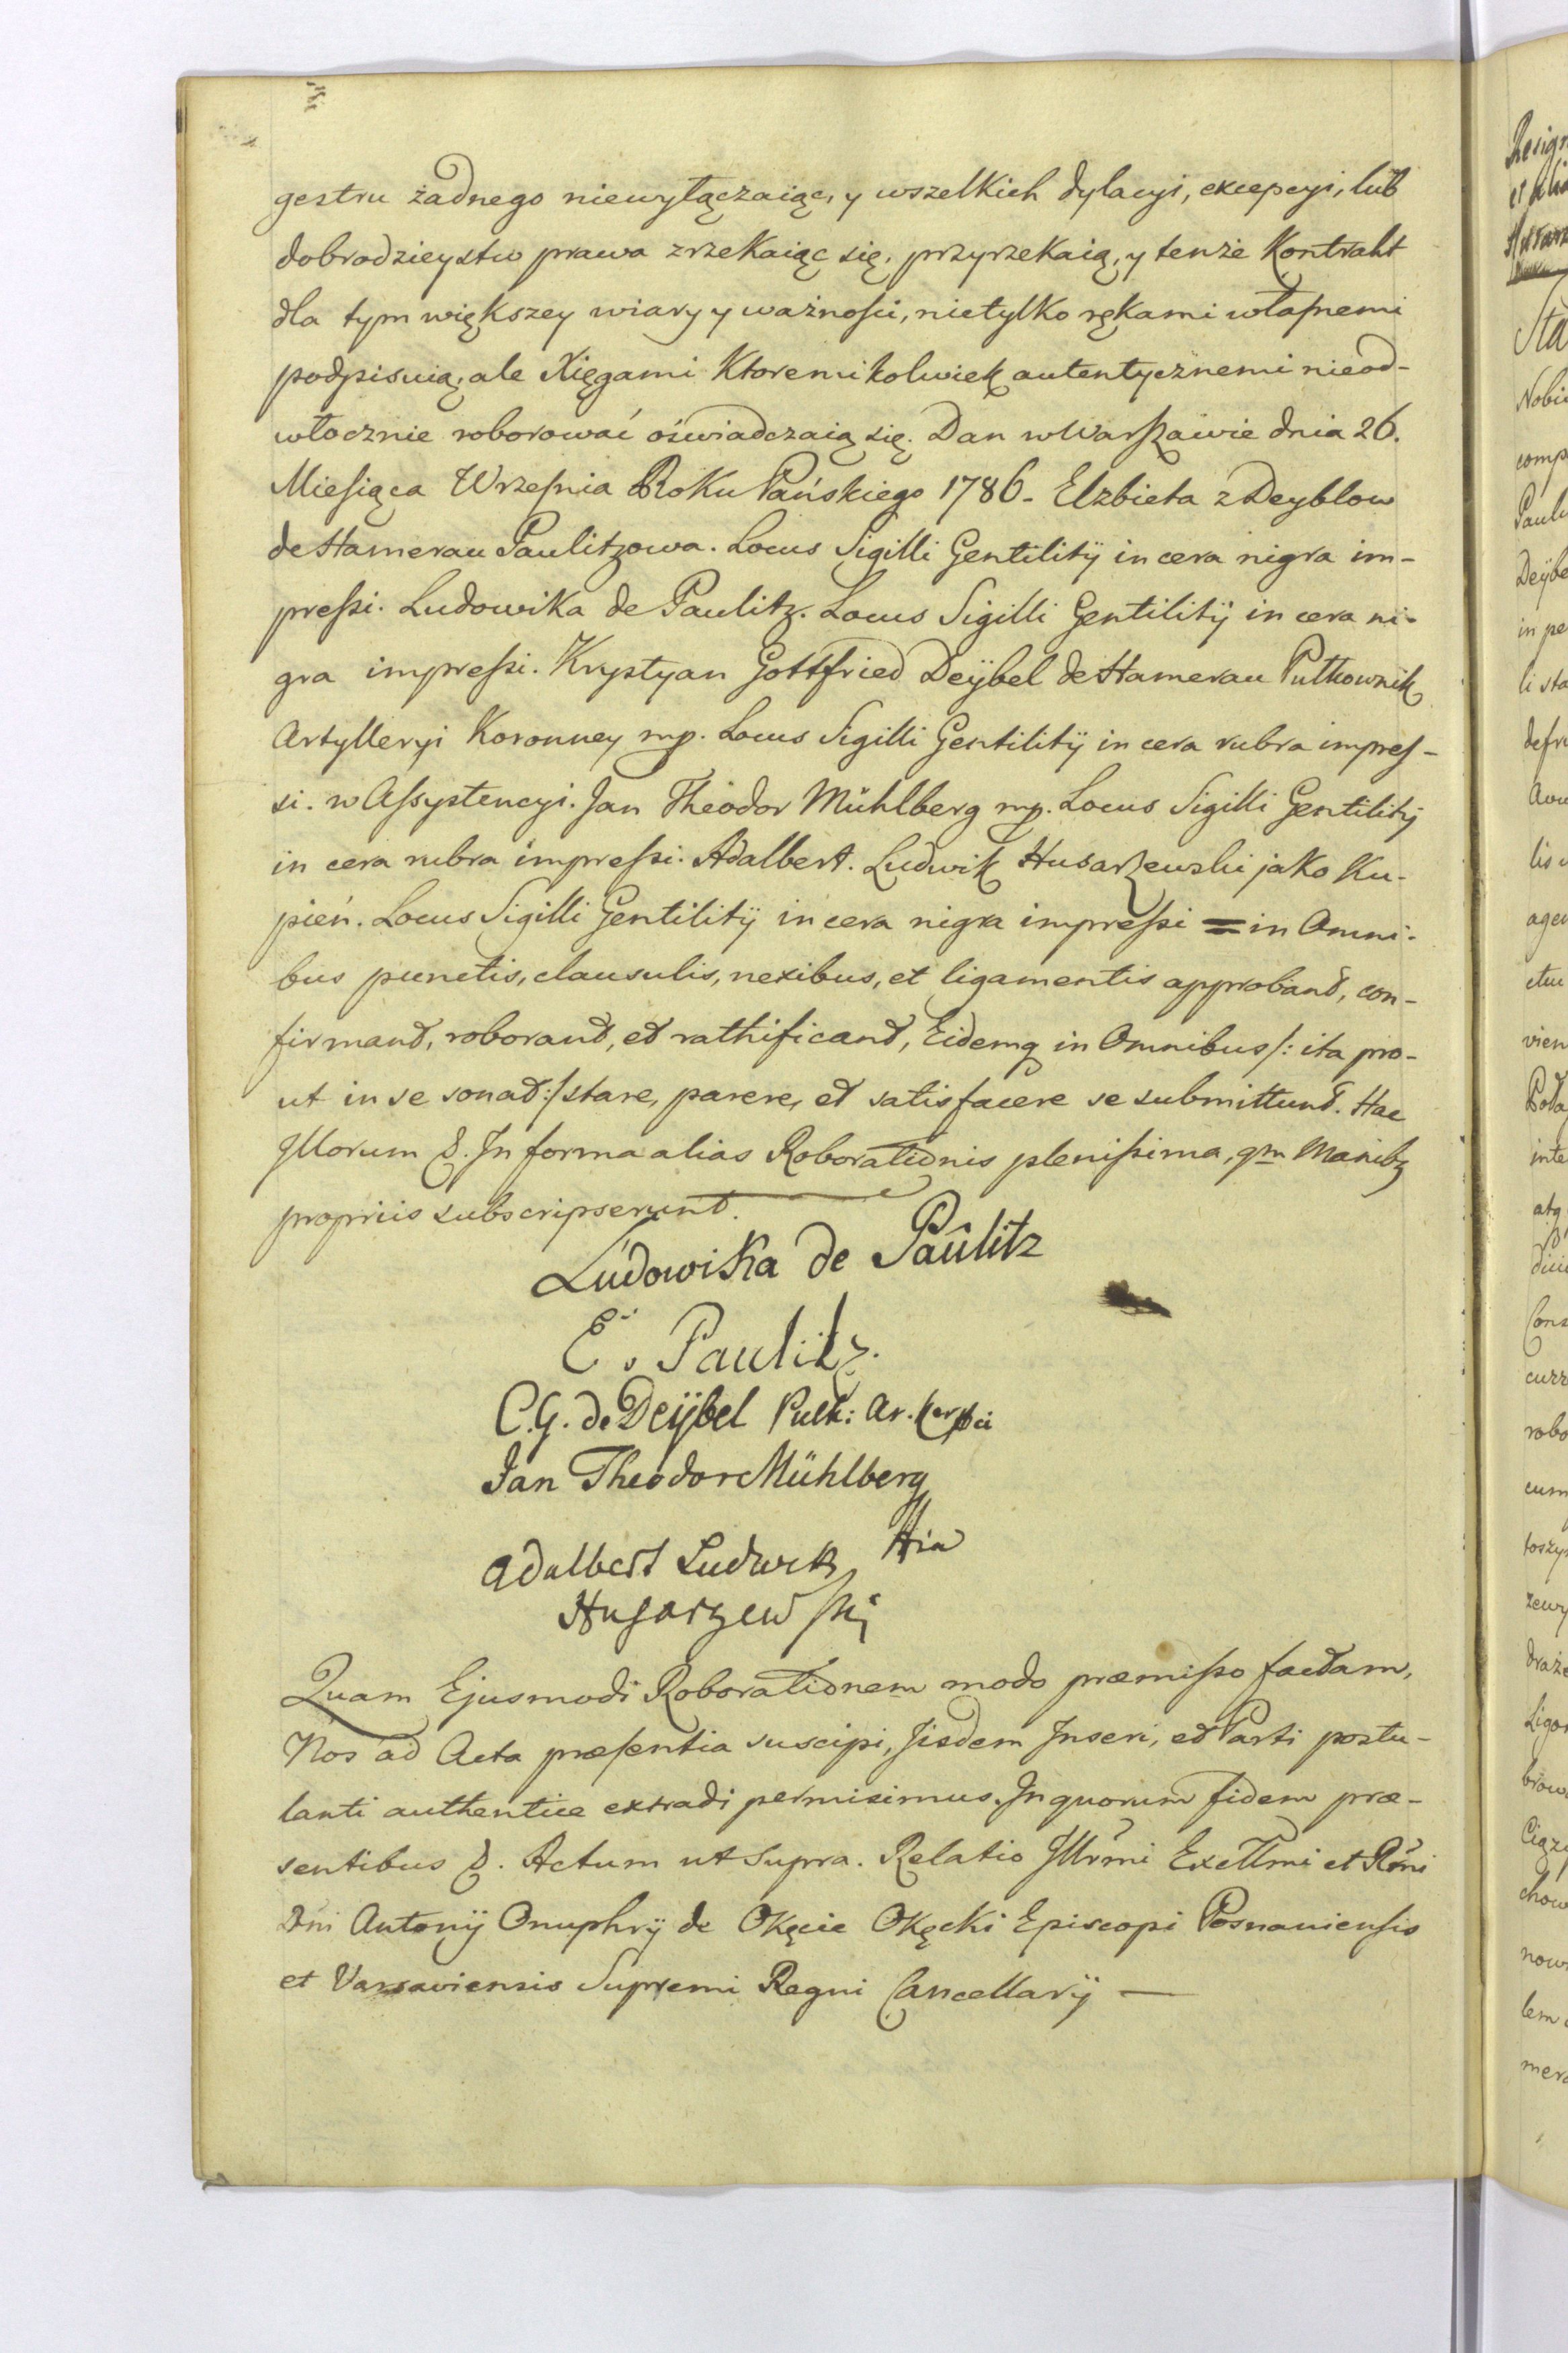 gestru żadnego niewyłączaiąc, y wszelkich dylacyi, excepcyi, lub
dobrodzieystw prawa zrzekaiąc się, przyrzekaią, y tenże Kontrakt
dla tym większey wiary y ważności, nietylko rękami własnemi
podpisuią, ale Xięgami Ktoremikolwiek autentycznemi nieod-
włocznie roborować oświadczaią się. Dan w Warszawie dnia 26.
Miesiąca Września Roku Pańskiego 1786. Elzbieta z Deyblow
de Hamerau Paulitzowa. Locus Sigilli Gentilitÿ in cera nigra im-
pressi. Ludowika de Paulitz. Locus Sigilli Gentilitÿ in cera ni-
gra impressi. Krystyan Gottfried Deÿbel de Hamerau Pułkownik
Artylleryi Koronney mp. Locus Sigilli Gentilitÿ in cera rubra impres-
si. w Assystencyi. Jan Theodor Mühlberg mp. Locus Sigilli Gentilitÿ
in cera rubra impressi. Adalbert. Ludwik Husarzewski jako Ku-
pień. Locus Sigilli Gentilitÿ in cera nigra impressi = in Omni-
bus punctis, clausulis, nexibus, et ligamentis approband, con-
firmand, roborand, et rathificand, Eidemq in Omnibus /: ita pro-
ut in se sonat :/ stare, parere, et satisfacere se submittunt. Hac
Illorum &. In forma alias Roborationis plenissima, qm Manibq
propriis subscripserunt.
Ludowika de Paulitz
E. Paulitz.
C.G. de Deÿbel Pułk: Ar.
Jan Theodor Mühlberg
Adalbert Ludwik Hia
Husarzewski
Quam Ejusmodi Roborationem modo præmisso factam,
Nos ad Acta præsentia suscipi, Iisdem Inseri, et Parti postu-
lanti authentice extradi permisimus. In quorum fidem præ-
sentibus &. Actum ut Supra. Relatio Illrmi Excellmi et Rmi
Dni Antonÿ Onuphrÿ de Okęcie Okęcki Episcopi Posnaniensis
et Varsaviensis Supremi Regni Cancellarÿ —